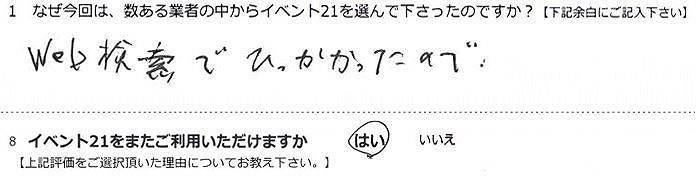 1 なぜ今回は、数ある業者の中からイベント21を選んで下さったのですか？【下記余白にご記入下さい】
Web検索でひっかかったので.
8 イベント21をまたご利用いただけますか はい いいえ
【上記評価をご選択頂いた理由についてお教え下さい。】